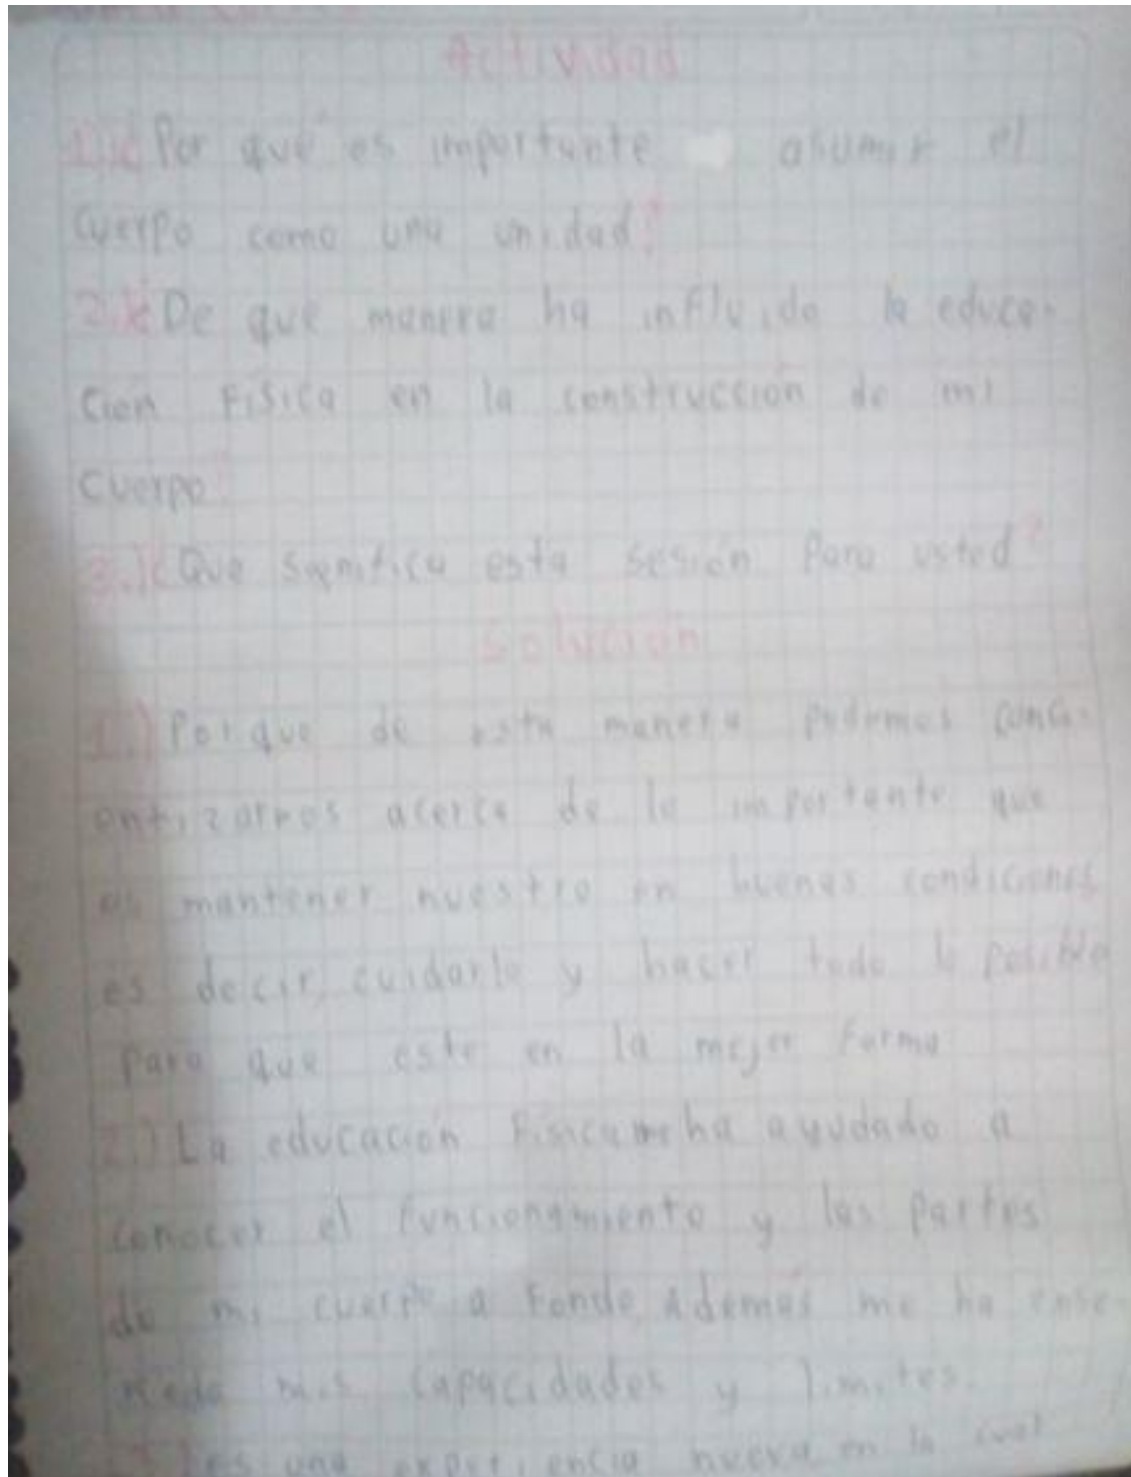 Actividad
1.)¿Por qué es importante asumir el
cuerpo como una unidad?
2.)¿De que manera ha influido la educa-
ción Física en la construcción de mi
cuerpo?
3.)¿Que significa esta sesión para usted?
Solución
1.) Porque de esta manera podemos conci-
entizarnos acerca de lo importante que
es mantener nuestro en buenas condiciones
es decir, cuidarlo y hacer todo lo posible
para que este en la mejor forma
2.) La educación Física me ha ayudado a
conocer el funcionamiento y las partes
de mi cuerpo a fondo, Además me ha ense-
ñado mis capacidades y limites.
3.) es una experiencia nueva en la cual